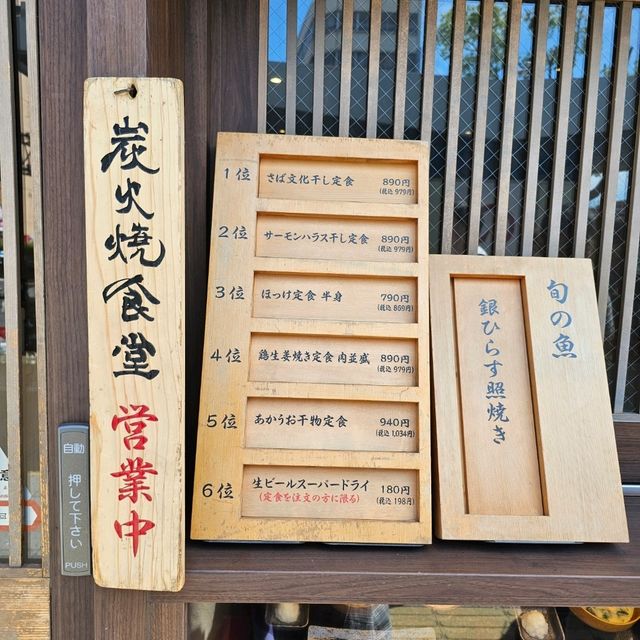 炭火焼食堂
営業中
自動
押して下さい
PUSH
1位
さば文化干し定食
890円
(税込 979円)
2位
サーモンハラス干し定食
890円
(税込 979円)
3位
ほっけ定食 半身
790円
(税込 869円)
4位
鶏生姜焼き定食 肉並盛
890円
(税込 979円)
5位
あかうお干物定食
940円
(税込 1,034円)
6位
生ビールスーパードライ
(定食を注文の方に限る)
180円
(税込 198円)
旬の魚
銀ひらす照焼き